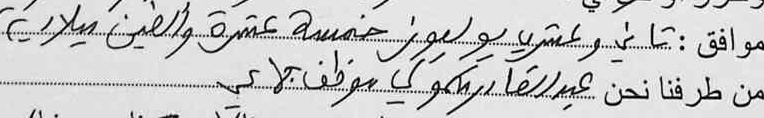 موافق : ثاني وعشرين يوليوز خمسة عشرة وألفين ميلادية
من طرفنا نحن عبد القادر موظف